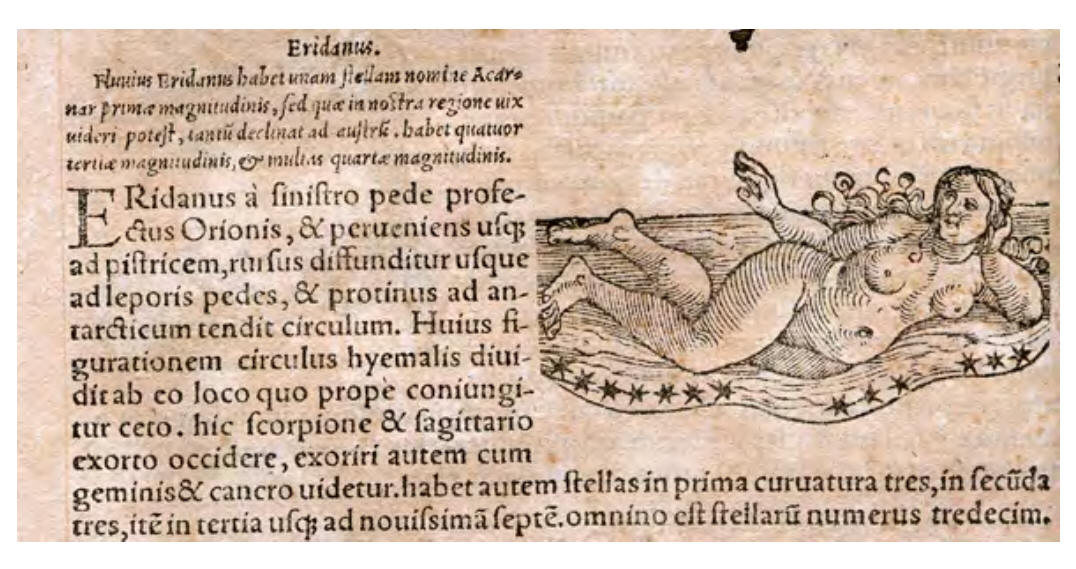 Eridanus.
Fluuius Eridanus habet unam stellam nomine Acar-
nar primæ magnitudinis, sed quæ in nostra regione uix
uideri potest, tantũ declinat ad austrũ. habet quatuor
tertiæ magnitudinis, & multas quartæ magnitudinis.
ERidanus à sinistro pede profe-
ctus Orionis, & perueniens usq;
ad pistricem, rursus diffunditur usque
ad leporis pedes, & protinus ad an-
tarcticum tendit circulum. Huius fi-
gurationem circulus hyemalis diui-
dit ab eo loco quo propè coniungi-
tur ceto. hic scorpione & sagittario
exorto occidere, exoriri autem cum
geminis & cancro uidetur. habet autem stellas in prima curuatura tres, in secũda
tres, itẽ in tertia usq; ad nouissimã septẽ. omnino est stellarũ numerus tredecim.